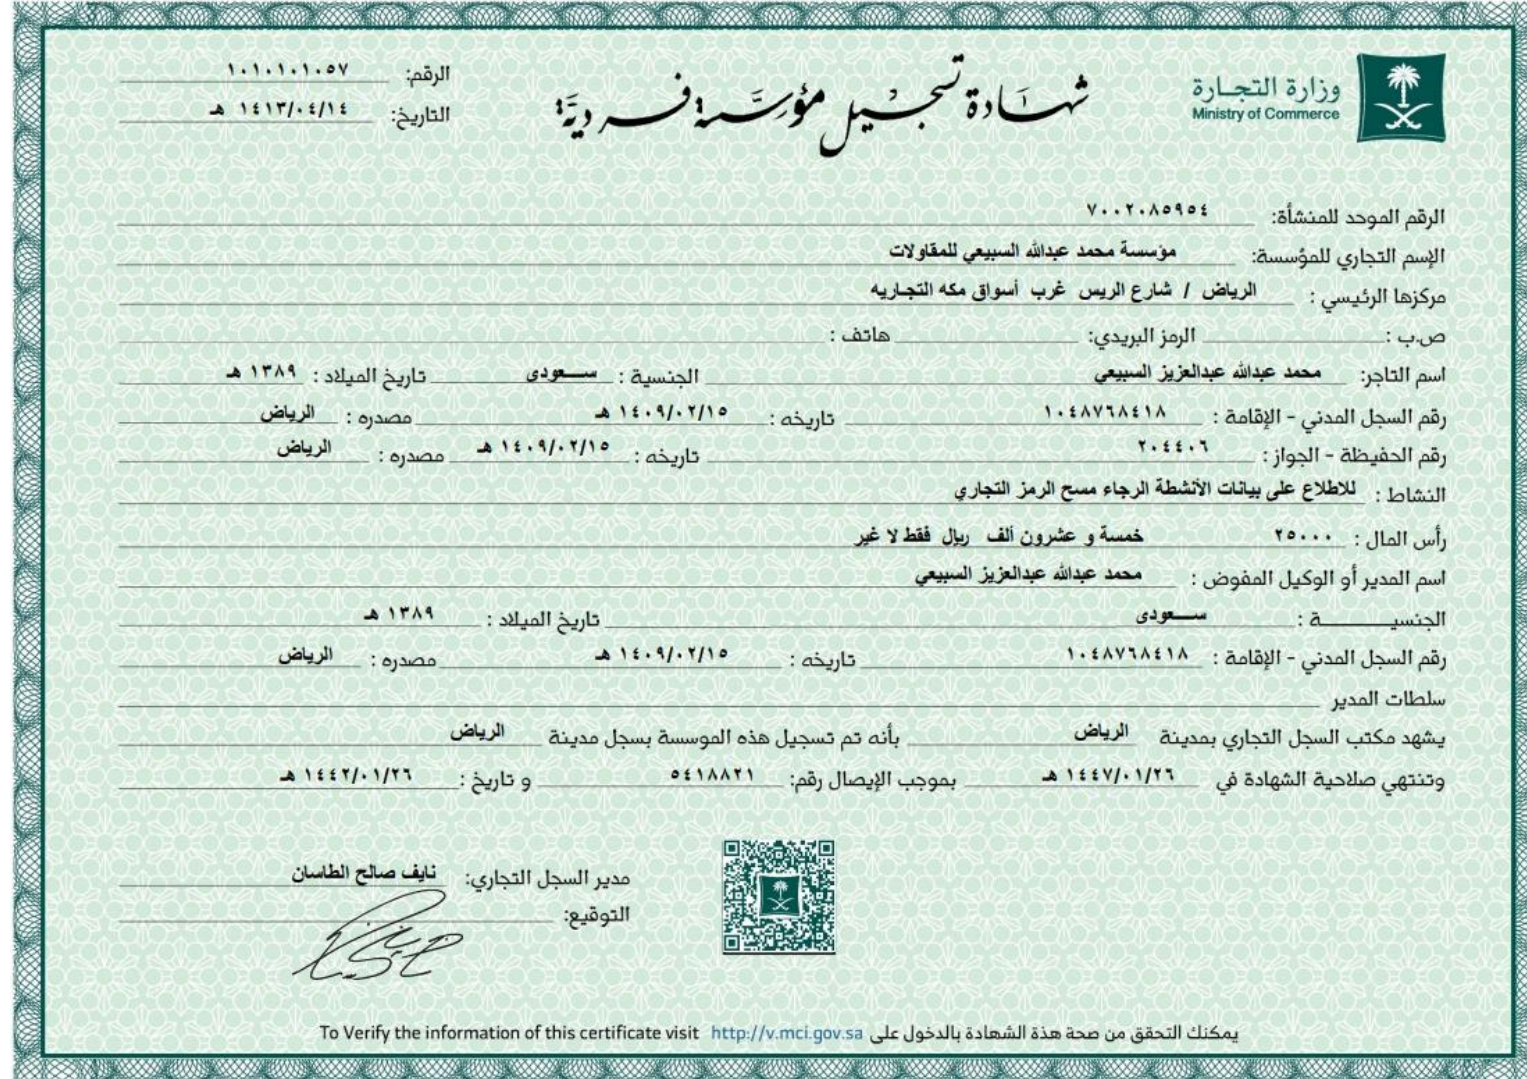 وزارة التجـارة
Ministry of Commerce
شهادة تسجيل مؤسسة فردية
الرقم: ١٠١٠١٠١٠٥٧
التاريخ: ١٤١٣/٠٤/١٤ هـ
الرقم الموحد للمنشأة: ٧٠٠٢٠٨٥٩٥٤
الإسم التجاري للمؤسسة: مؤسسة محمد عبدالله السبيعي للمقاولات
مركزها الرئيسي : الرياض / شارع الريس غرب أسواق مكه التجاريه
ص.ب : الرمز البريدي: هاتف :
اسم التاجر: محمد عبدالله عبدالعزيز السبيعي الجنسية : ســعودى تاريخ الميلاد : ١٣٨٩ هـ
رقم السجل المدني - الإقامة : ١٠٤٨٧٦٨٤١٨ تاريخه : ١٤٠٩/٠٢/١٥ هـ مصدره : الرياض
رقم الحفيظة - الجواز : ٢٠٤٤٠٦ تاريخه : ١٤٠٩/٠٢/١٥ هـ مصدره : الرياض
النشاط : للاطلاع على بيانات الأنشطة الرجاء مسح الرمز التجاري
رأس المال : ٢٥٠٠٠ خمسة و عشرون ألف ريال فقط لا غير
اسم المدير أو الوكيل المفوض : محمد عبدالله عبدالعزيز السبيعي
الجنسيــــــة : ســعودى تاريخ الميلاد : ١٣٨٩ هـ
رقم السجل المدني - الإقامة : ١٠٤٨٧٦٨٤١٨ تاريخه : ١٤٠٩/٠٢/١٥ هـ مصدره : الرياض
سلطات المدير
يشهد مكتب السجل التجاري بمدينة الرياض بأنه تم تسجيل هذه الموسسة بسجل مدينة الرياض
وتنتهي صلاحية الشهادة في ١٤٤٧/٠١/٢٦ هـ بموجب الإيصال رقم: ٥٤١٨٨٢١ و تاريخ : ١٤٤٢/٠١/٢٦ هـ
مدير السجل التجاري: نايف صالح الطاسان
التوقيع:
يمكنك التحقق من صحة هذة الشهادة بالدخول على To Verify the information of this certificate visit http://v.mci.gov.sa